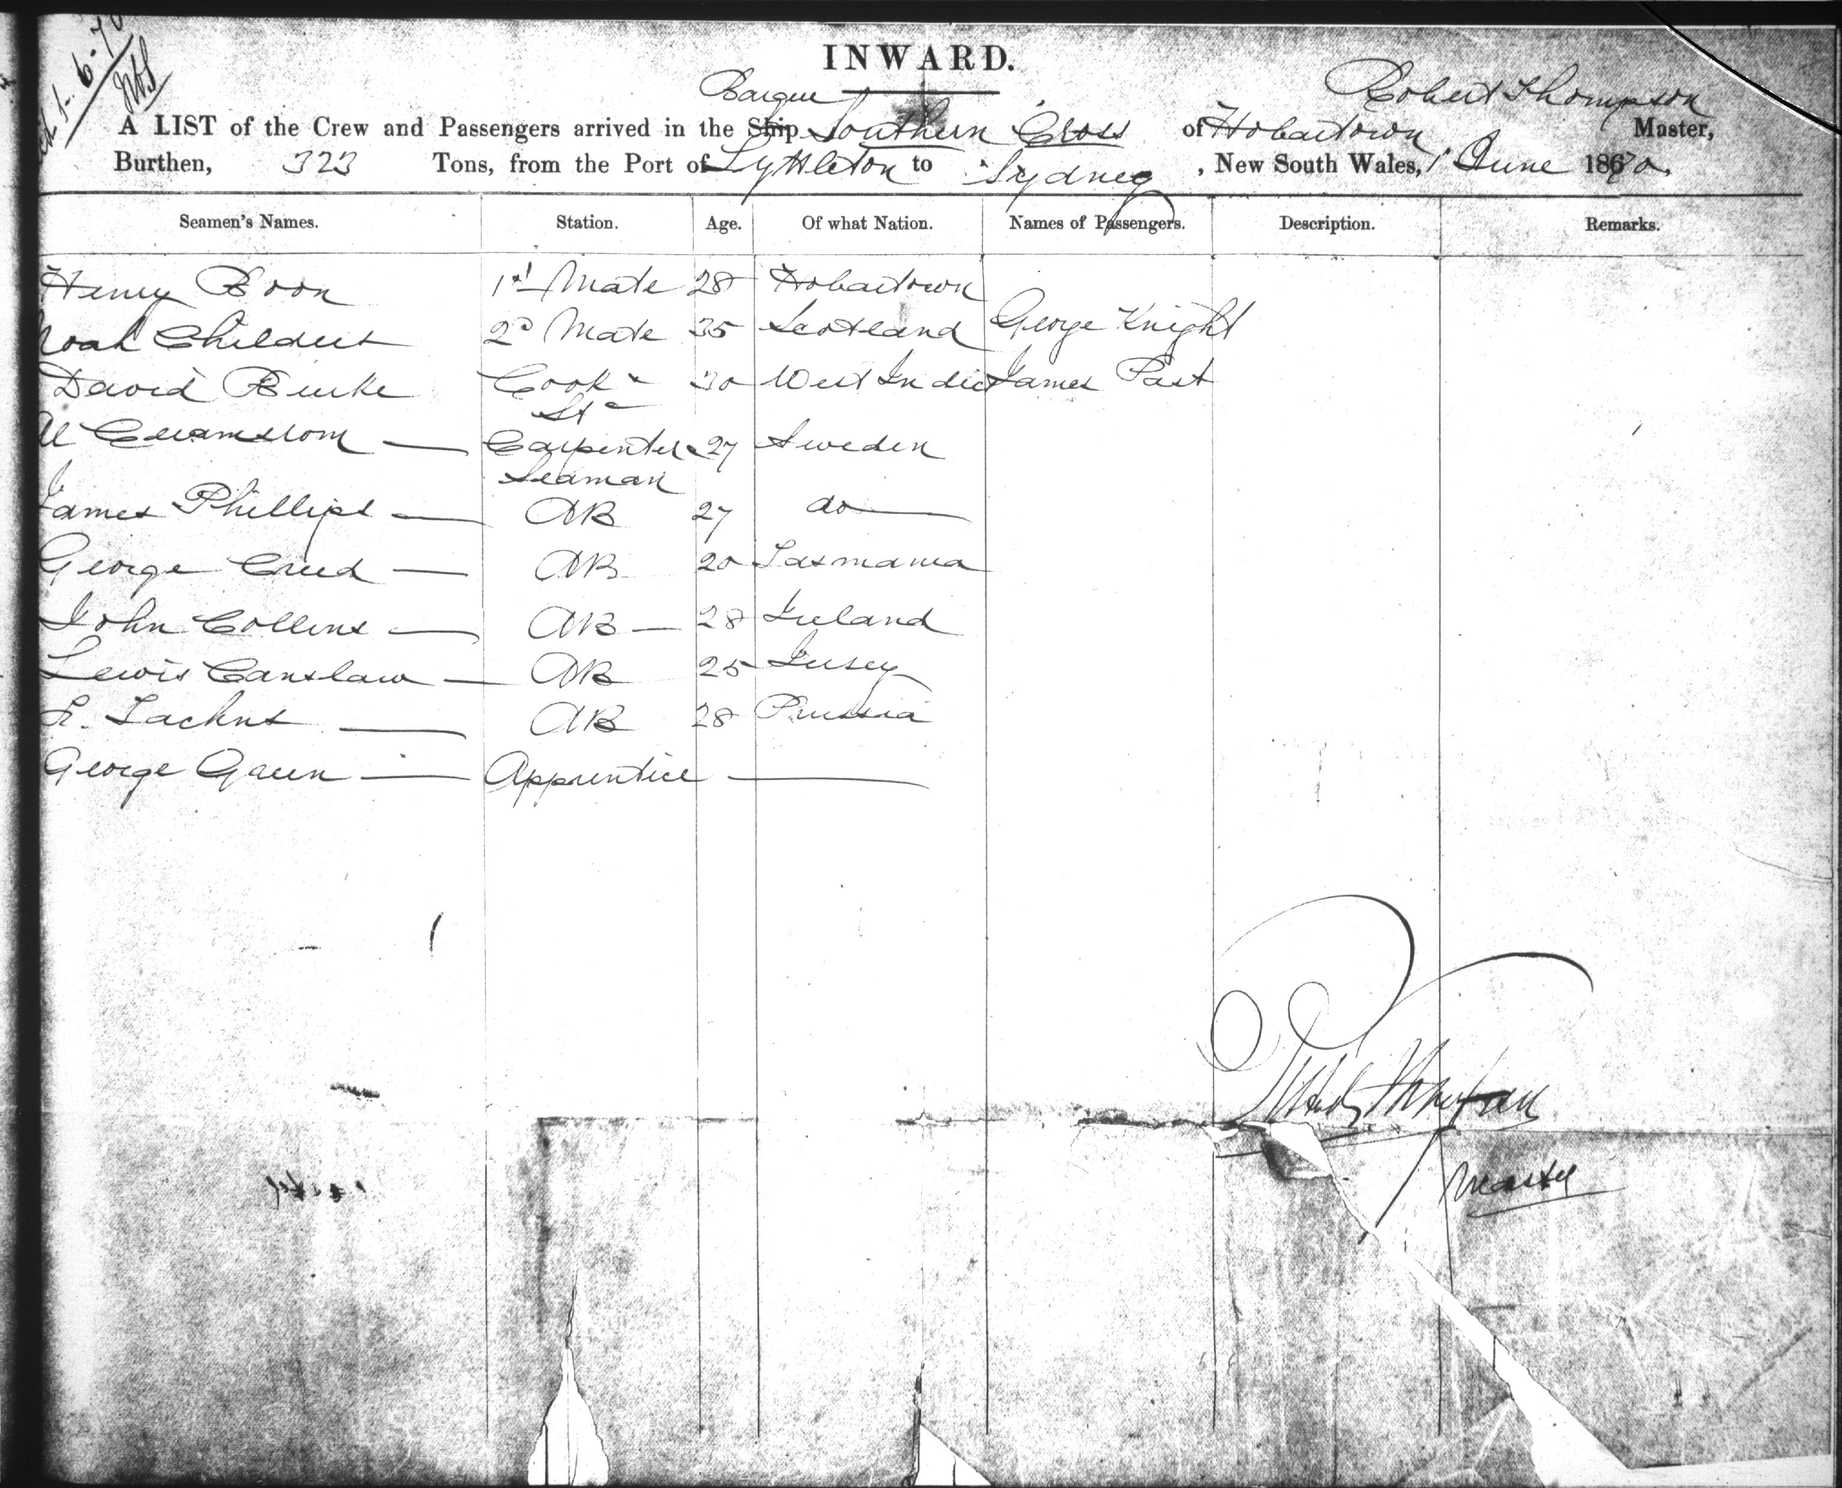 1-6-70
INWARD.
Barque Robert Thompson
A LIST of the Crew and Passengers arrived in the Ship Southern Cross of Hobartown Master,
Burthen, 323 Tons, from the Port of Lyttleton to Sydney, New South Wales, 1 June 1870.
Seamen's Names. Station. Age. Of what Nation. Names of Passengers. Description. Remarks.
Henry Boon 1st Mate 28 Hobartown
George Knight
Noah Childers 2d Mate 35 Scotland
David Burke Cook & 30 West Indies James Past
St
Al Carpenter & 27 Sweden
Seaman
James Phillips AB 27 do
George Creed AB 20 Tasmania
John Collins AB 28 Ireland
Lewis Canslaw AB 25 Jersey
L. AB 28 Prussia
George Green Apprentice
Thompson
Master